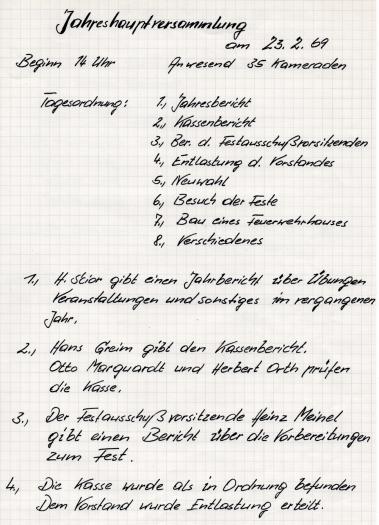 Jahreshauptversammlung
am 23.2.69
Beginn 14 Uhr Anwesend 35 Kameraden
Tagesordnung: 1., Jahresbericht
2., Kassenbericht
3., Ber. d. Festausschußvorsitzenden
4., Entlastung d. Vorstandes
5., Neuwahl
6., Besuch der Feste
7., Bau eines Feuerwehrhauses
8., Verschiedenes
1., H. Stior gibt einen Jahrbericht über Übungen
Veranstaltungen und sonstiges im vergangenen
Jahr.
2., Hans Greim gibt den Kassenbericht.
Otto Marquardt und Herbert Orth prüfen
die Kasse.
3., Der Festausschußvorsitzende Heinz Meinel
gibt einen Bericht über die Vorbereitungen
zum Fest.
4., Die Kasse wurde als in Ordnung befunden
Dem Vorstand wurde Entlastung erteilt.